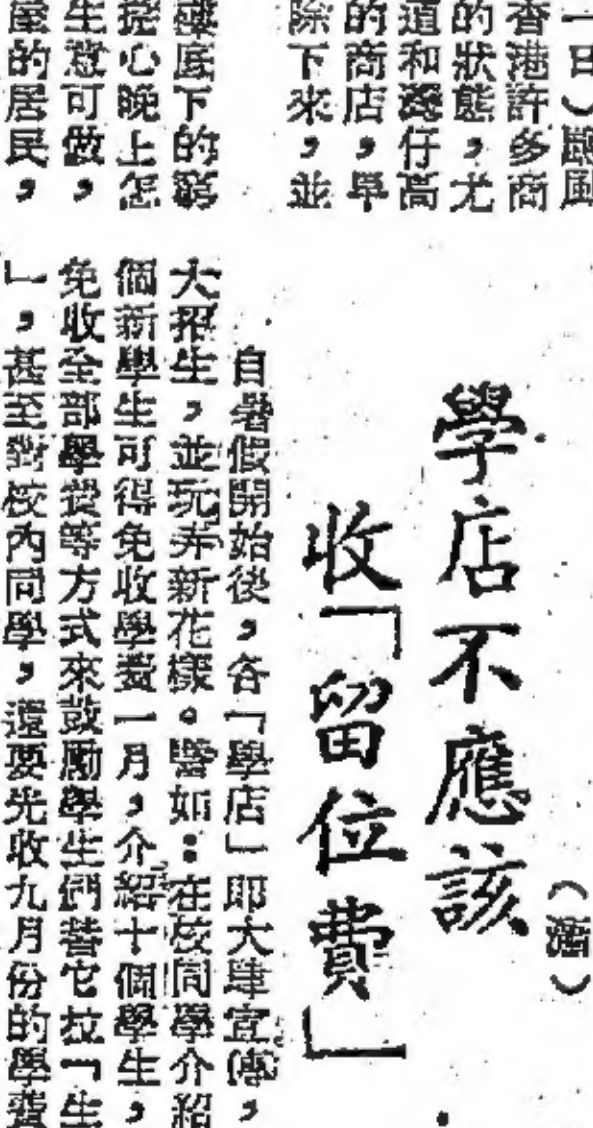 一日）颶風
香港許多商
的狀態，尤
道和灣仔高
的商店，單
除下來，並
樓底下的窮
提心晚上怎
生意可做，
屋的居民，
（濤）
學店不應該
收「留位費」
自暑假開始後，各「學店」即大肆宣傳，
大招生，並玩弄新花樣。譬如：在校同學介紹
個新學生可得免收學費一月，介紹十個學生，
免收全部學費等方式來鼓勵學生們替它拉「生
」，甚至對校內同學，還要先收九月份的學費